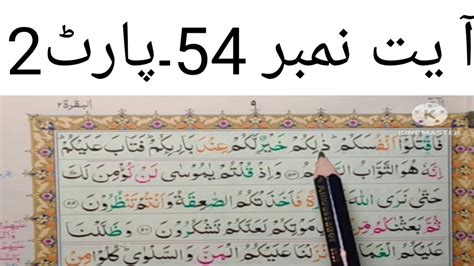 آیت نمبر 54۔پارٹ2
البقرة ٢
٩
KINEMASTER
فَاقْتُلُوْٓا اَنْفُسَكُمْ ذٰلِكُمْ خَیْرٌ لَّكُمْ عِنْدَ بَارِىِٕكُمْ فَتَابَ عَلَیْكُمْ
اِنَّهٗ هُوَ التَّوَّابُ وَاِذْ قُلْتُمْ یٰمُوْسٰى لَنْ نُّؤْمِنَ لَكَ
حَتّٰى نَرَى اللّٰهَ فَاَخَذَتْكُمُ الصّٰعِقَةُ وَاَنْتُمْ تَنْظُرُوْنَ
ثُمَّ بَعَثْنٰكُمْ مِّنْ مَوْتِكُمْ لَعَلَّكُمْ تَشْكُرُوْنَ وَظَلَّلْنَا
عَلَیْكُمُ الْغَمَامَ عَلَیْكُمُ الْمَنَّ وَالسَّلْوٰى كُلُوْا مِنْ